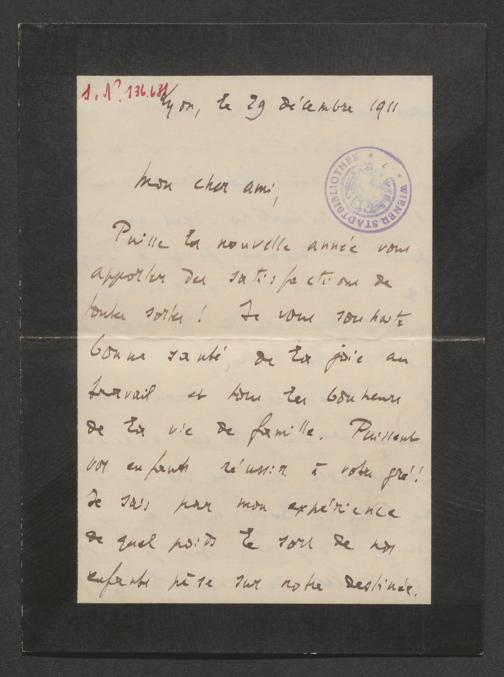 S. N. 136.681
Lyon, le 29 décembre 1911
WIENER STADTBIBLIOTHEK
Mon cher ami,
Puisse la nouvelle année vous
apporter des satisfactions de
toutes sortes ! Je vous souhaite
bonne santé, de la joie au
travail et tous les bonheurs
de la vie de famille. Puissent
vos enfants réussir à votre gré !
Je sais par mon expérience
de quel poids le sort de nos
enfants pèse sur notre destinée.